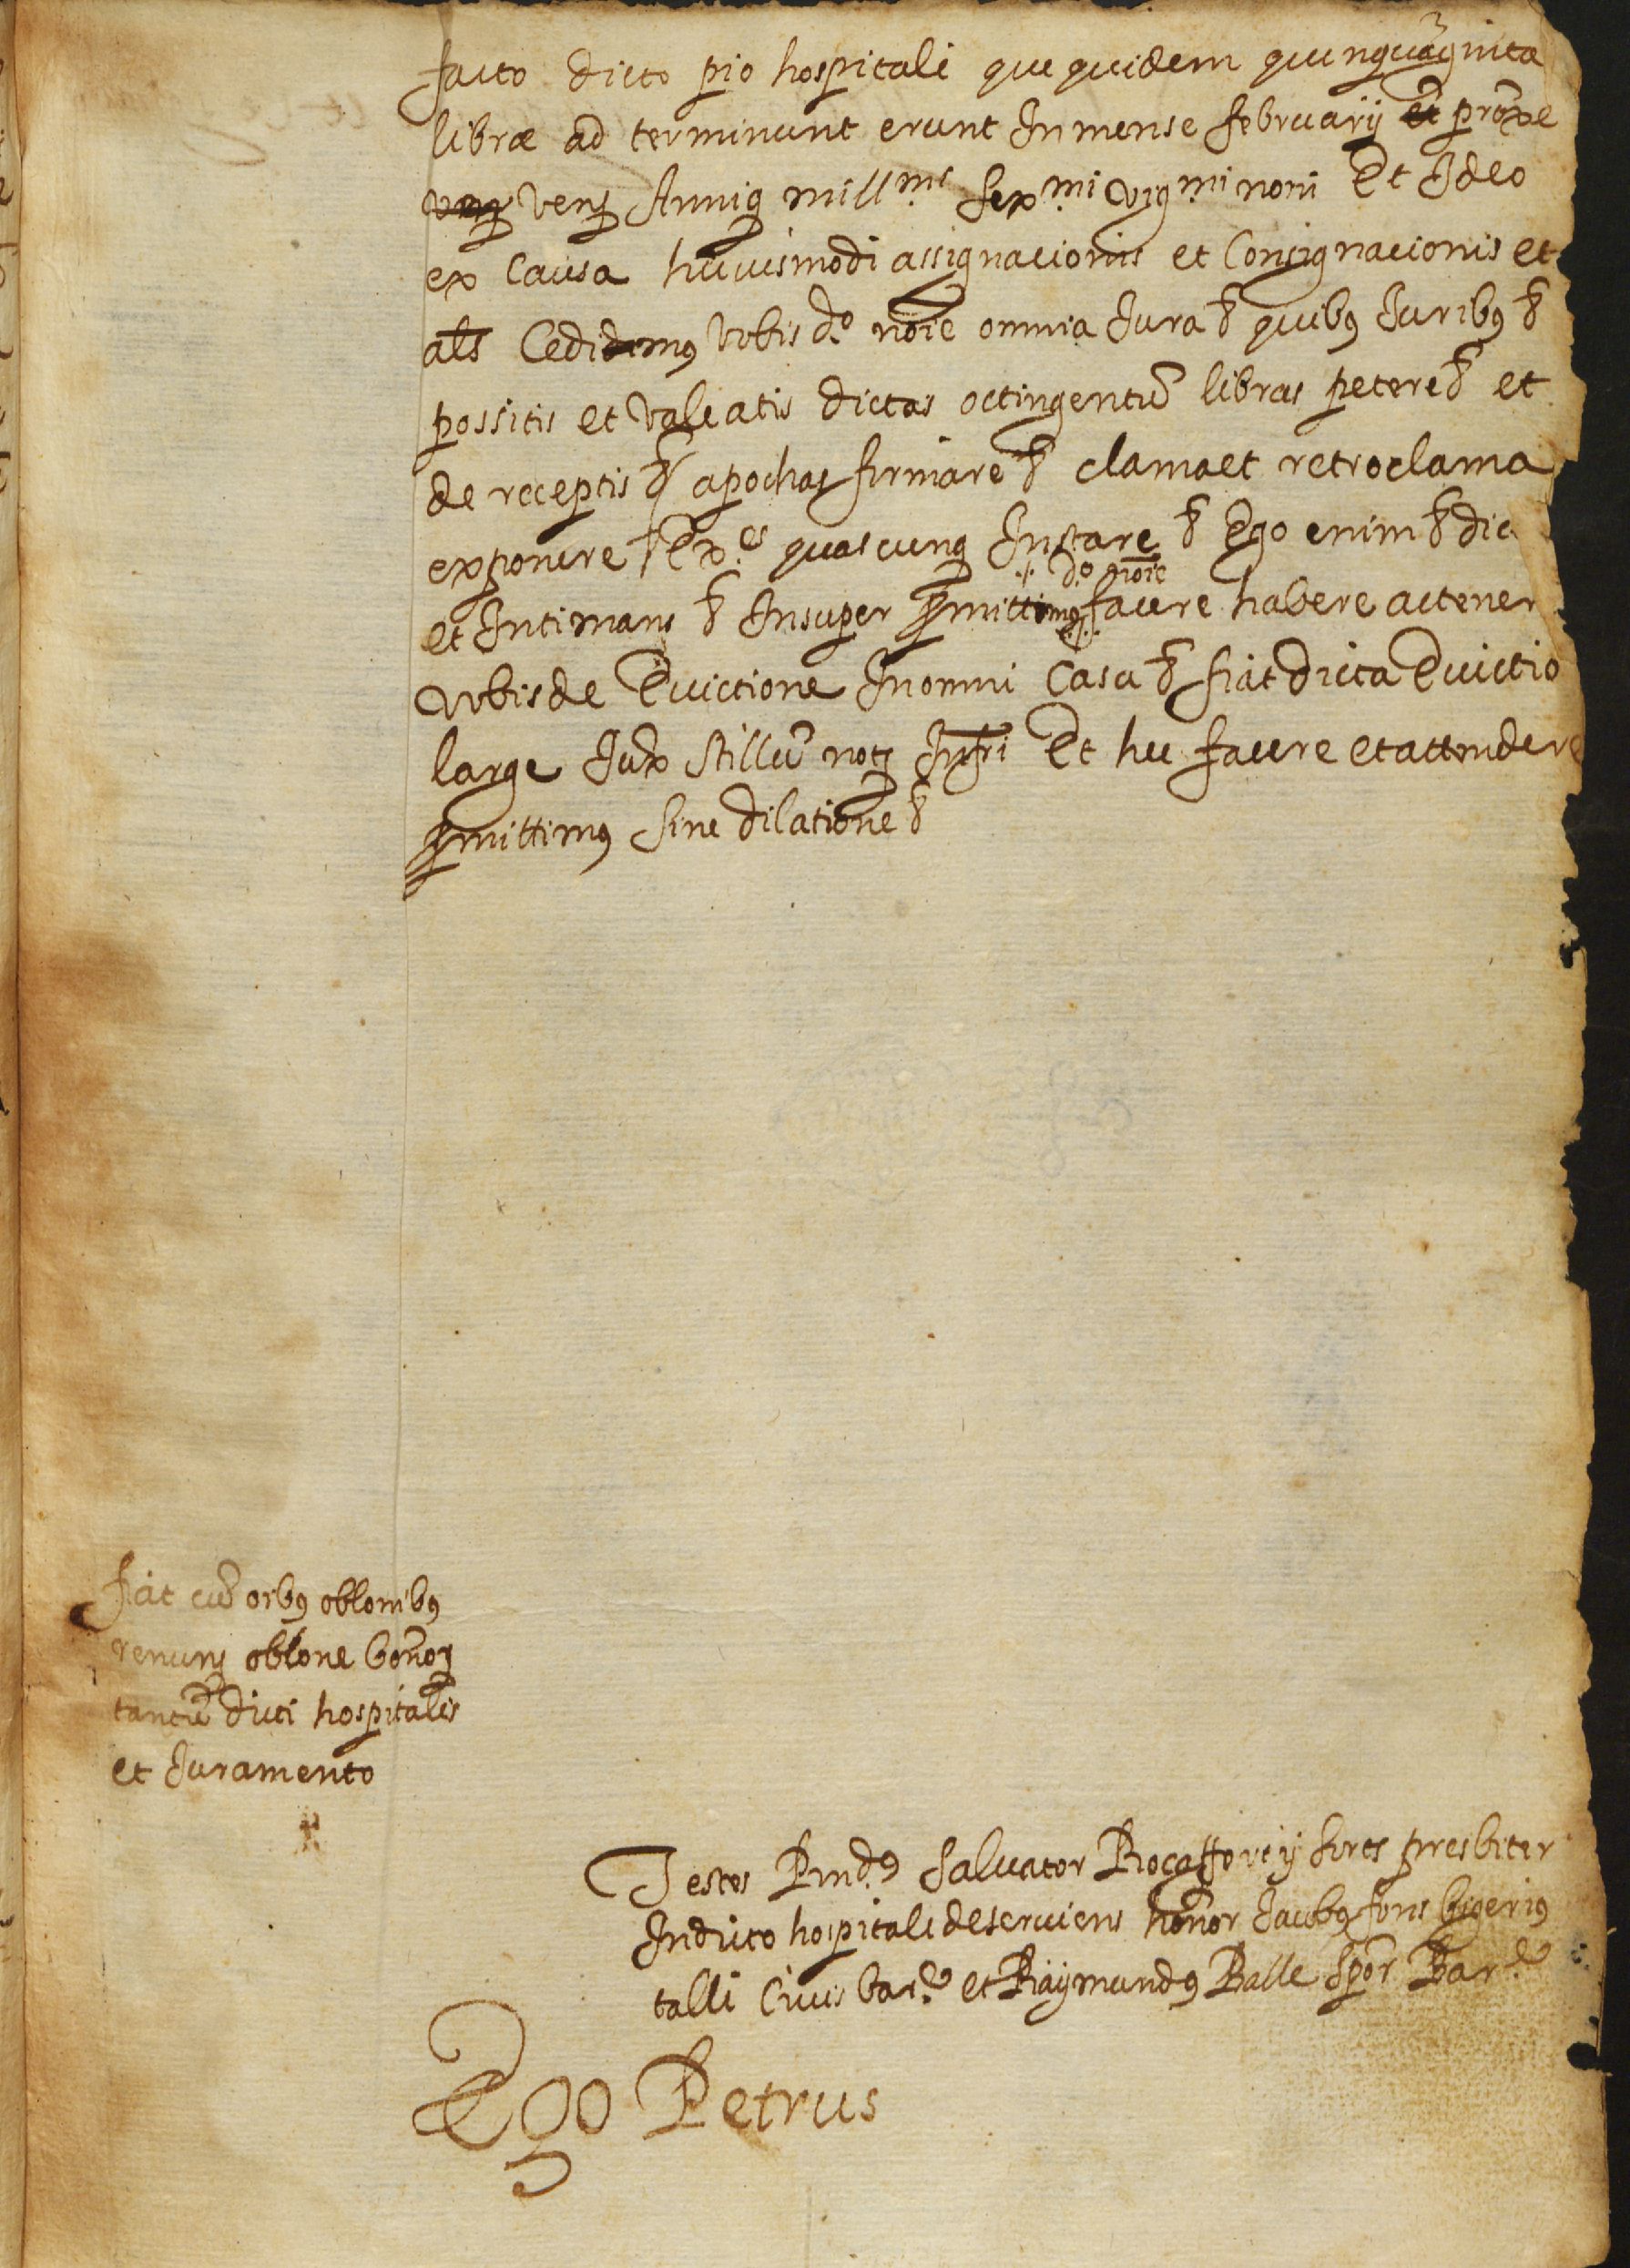 facto dicto pio hospitali que quidem quinquaginta
libræ ad terminum erunt In mense februarij et proxe
vers Anniq mill.mi sex.mi vig.mi noni Et Ideo
ex Causa huiusmodi assignacionis et Consignacionis et
als Cedimus vobis d.o noie omnia Jura & quibus Juribus &
possitis et valeatis dictas octingentū libras petere & et
de receptis & apochas firmare & clama et retroclama
exponere Ex.es quascunq Instare & Ego enim & dic
et Intimans & Insuper pmittimus d.o noie facere habere ac tener
vobis de Evictione In omni Casu & fiat dicta Evictio
large Jux stillū not Infri Et hec facere et attendere
pmittimus sine dilatione &
fiat cū orbus oblonibus
renuns oblone bonor
tantū dicti hospitalis
et Juramento
Testes Rnd.us Salvator Rocaffort ÿ Sors presbiter
In dicto hospitali deserviens honor Jacobus fons
talli Civis bar.e et Raÿmundus Balle Spor Bar.e
Ego Petrus